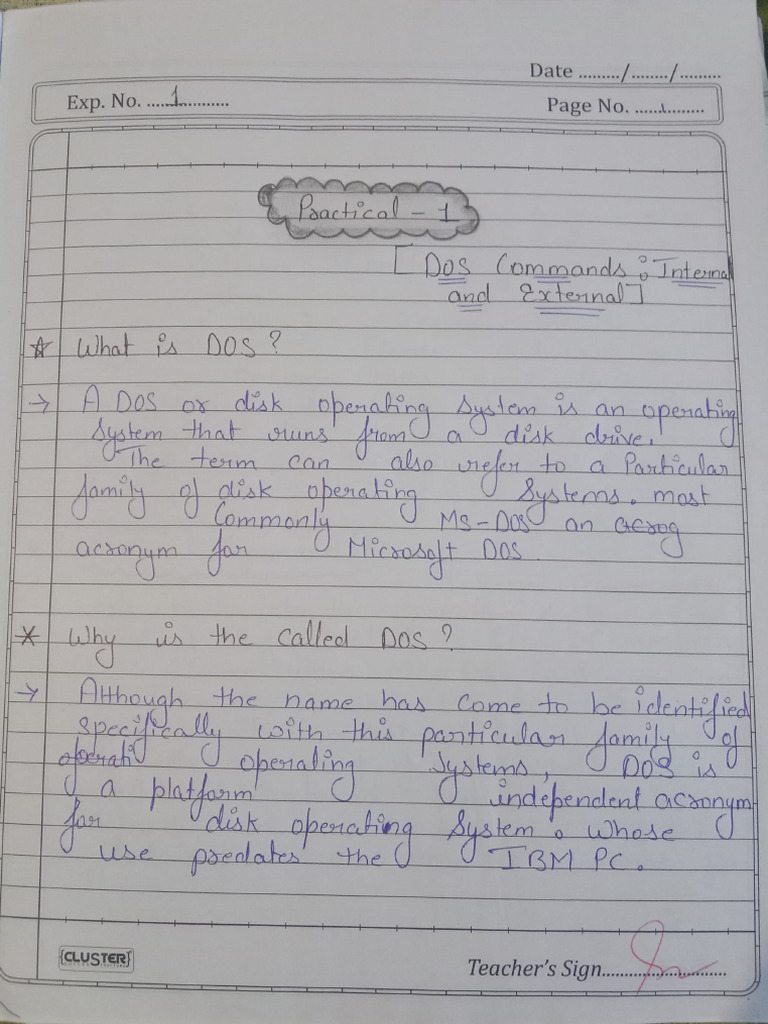 Date ........./......../.........
Exp. No. .....1............
Page No. ......1........
Practical - 1
[DOS Commands : Internal
and External]
☆ What is DOS?
→ A DOS or disk operating system is an operating
system that runs from a disk drive.
The term can also refer to a Particular
family of disk operating Systems. most
Commonly MS-DOS an acrog
acronym for Microsoft DOS
* Why is the called DOS?
→ Although the name has come to be identified
specifically with this particular family of
operati operating systems, DOS is
a platform independent acronym
for disk operating System. whose
use predates the IBM PC.
{CLUSTER}
Teacher's Sign..............................